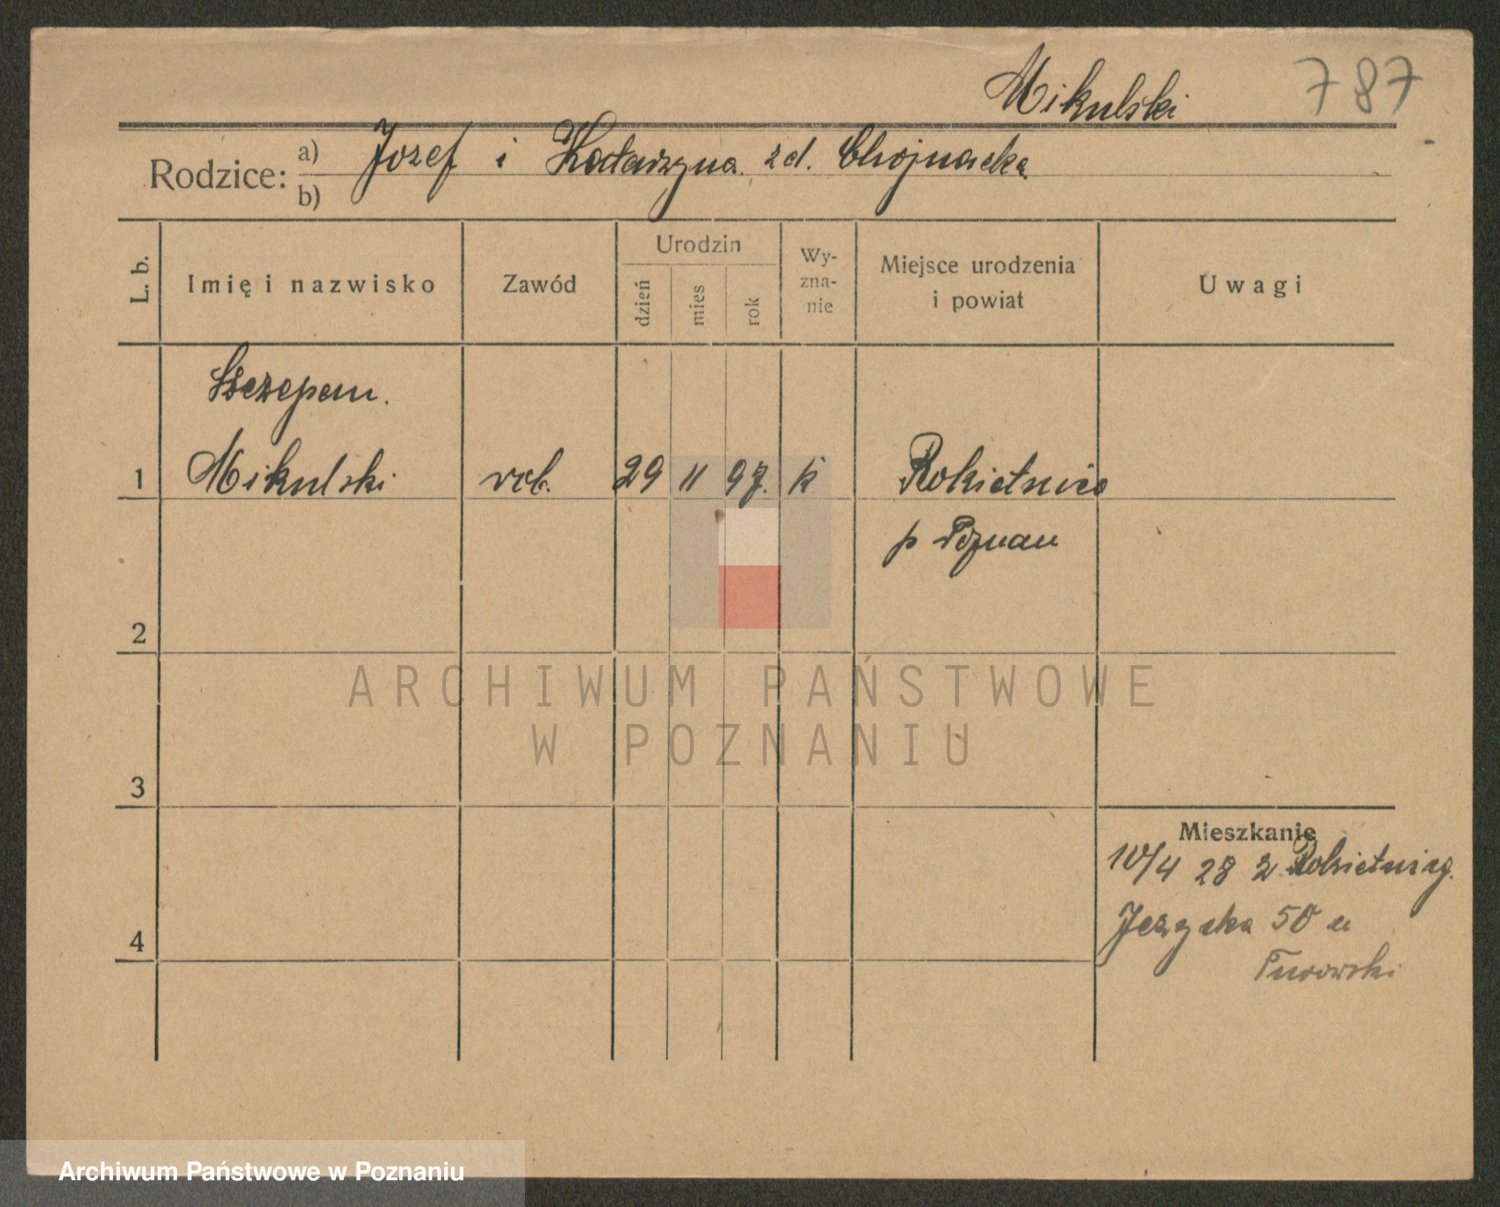 Mikulski 787
Rodzice: a) Józef i Katarzyna zd. Chojnacka
b)
L. b. Imię i nazwisko Zawód Urodzin dzień mies rok Wy-zna-nie Miejsce urodzenia i powiat Uwagi
Szczepan.
1 Mikulski rob. 29 11 97. k Rokietnica
p Poznan
2
3
ARCHIWUM PAŃSTWOWE
W POZNANIU
Mieszkanie
10/4 28 z Rokietnicy.
4 Jeżycka 50 u
Turowski
Archiwum Państwowe w Poznaniu